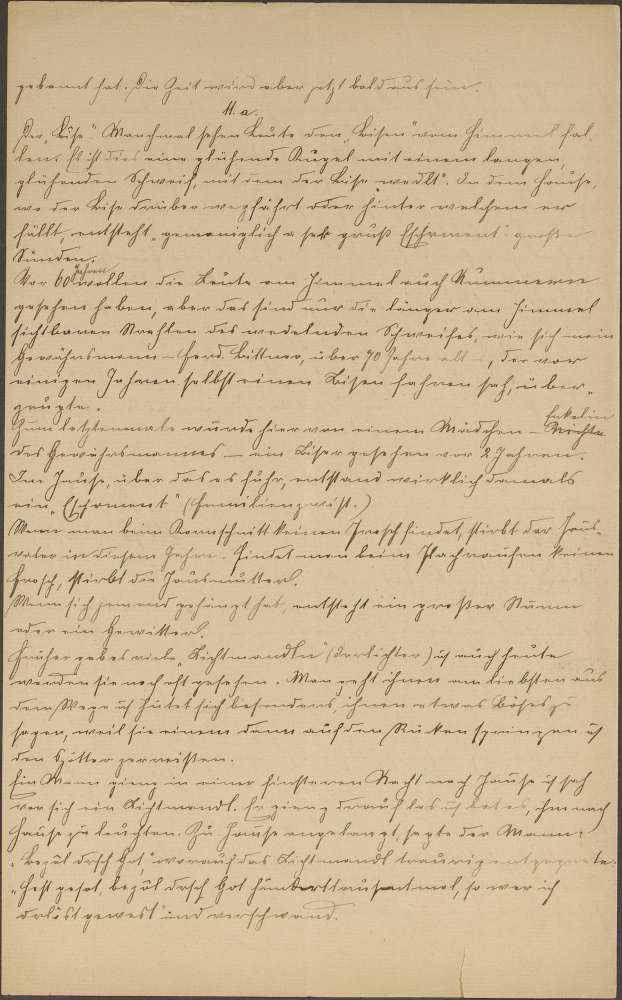 gebannt hat. Die Zeit wird aber jetzt bald aus sein.
11. a.
Der „Bise". Manchmal sehen Leute den „Bisen" vom Himmel fal-
len. Es ist dies eine glühende Kugel mit einem langen,
glühenden Schweif, mit dem der Bise „wedlt". In dem Hause,
wo der Bise drüber wegfährt oder hinter welchem er
fällt, entsteht „gemoniglich a sehr gruß große
Sünden.
Vor 60 Jahren wollen die Leute am Himmel auch Nummern
gesehen haben, aber das sind nur die länger am Himmel
sichtbaren Strahlen des wedelnden Schweifes, wie sich mein
Gewährsmann – Ferd. Bittner, über 70 Jahre alt –, der vor
einigen Jahren selbst einen Bisen fahren sah, über-
zeugte.
Zum letztenmale wurde hier von einem Mädchen – Enkelin
des Gewährsmannes – ein Biser gesehen vor 2 Jahren.
Im Hause, über das es fuhr, entstand wirklich damals
ein (Familienzwist.)
Wenn man beim Kornschnitt keinen Frosch findet, stirbt der Haus-
vater in diesem Jahre. Findet man beim keinen
Frosch, stirbt die Hausmutter.
Wenn sich jemand gehängt hat, entsteht ein großer Sturm
oder ein Gewitter.
Früher gab es viele „Lichtmandln" (Irrlichter) u auch heute
werden sie noch oft gesehen. Man geht ihnen am liebsten aus
dem Wege u hütet sich besonders, ihnen etwas Böses zu
sagen, weil sie einem dann auf den Rücken springen u
den zerreißen.
Ein Mann gieng in einer finsteren Nacht nach Hause u sah
vor sich ein Lichtmandl. Er gieng darauf los u bat es, ihm nach
Hause zu leuchten. Zu Hause angelangt, sagte der Mann:
„Bezol drsch Got," worauf das Lichtmandl traurig entgegnete:
„Hest gesot, bezol drsch Got hunderttausendmol, so wer ich
drlöst gewest" und verschwand.